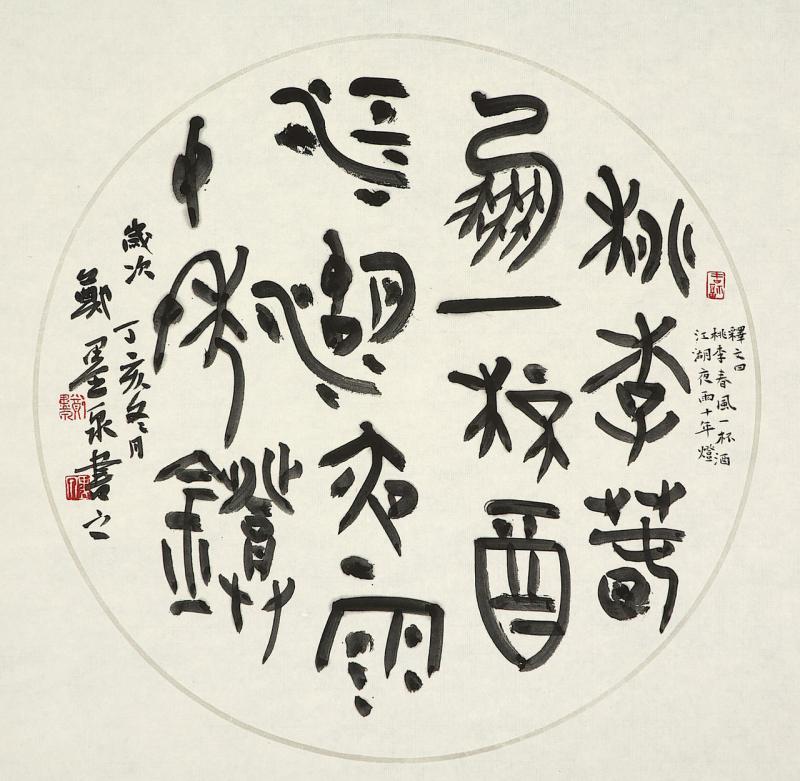 桃李春
風一杯酒
江湖夜雨
十年鐙
歲次丁亥冬月
鄭墨泉書之
釋文曰
桃李春風一杯酒
江湖夜雨十年燈